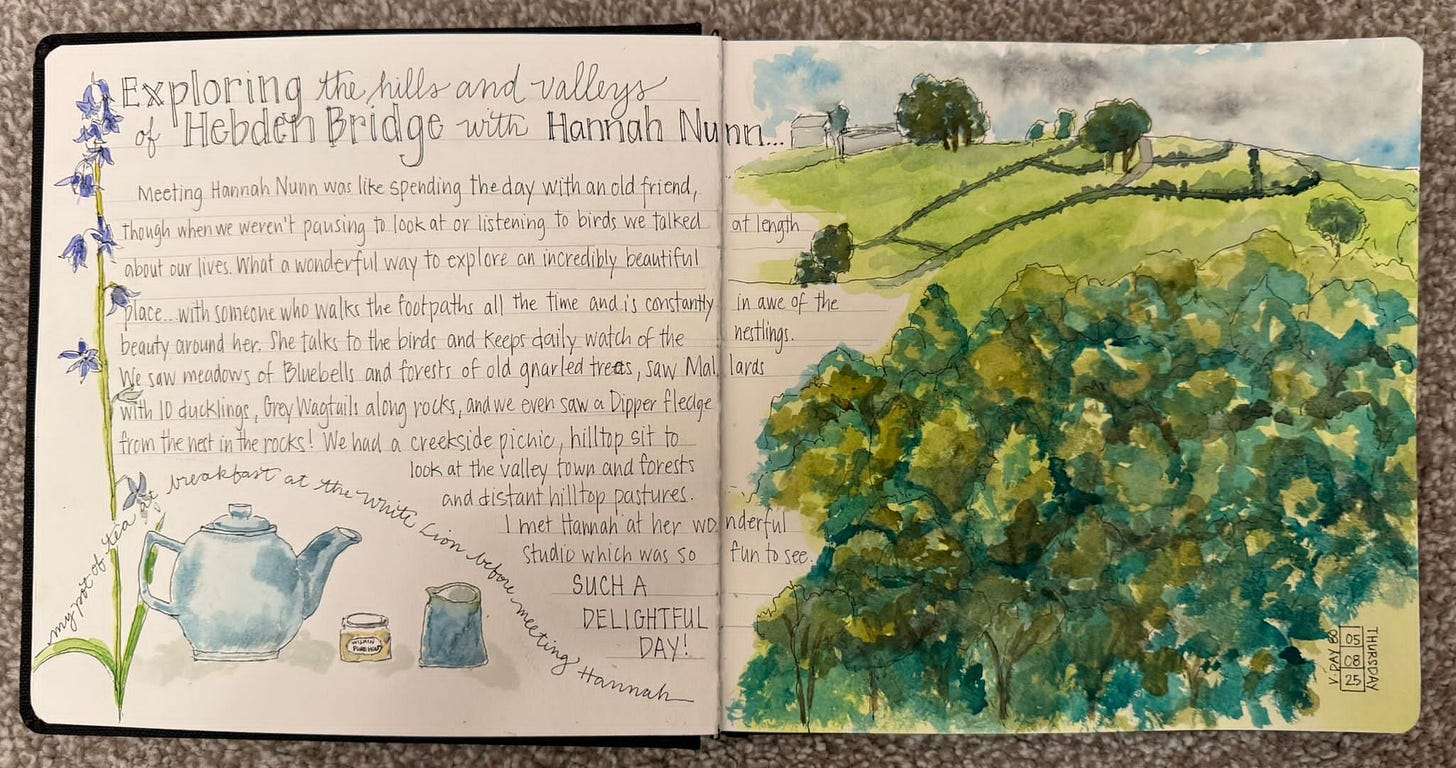 Exploring the hills and valleys
of Hebden Bridge with Hannah Nunn...
Meeting Hannah Nunn was like spending the day with an old friend,
though when we weren't pausing to look at or listening to birds we talked at length
about our lives. What a wonderful way to explore an incredibly beautiful
place.. with someone who walks the footpaths all the time and is constantly in awe of the
beauty around her. She talks to the birds and keeps daily watch of the nestlings.
We saw meadows of Bluebells and forests of old gnarled trees, saw Mallards
with 10 ducklings, Grey Wagtails along rocks, and we even saw a Dipper fledge
from the nest in the rocks! We had a creekside picnic, hilltop sit to
look at the valley town and forests
and distant hilltop pastures.
I met Hannah at her wonderful
studio which was so fun to see.
SUCH A
DELIGHTFUL
DAY!
my pot of tea at breakfast at the White Lion before meeting Hannah
PURE HONEY
THURSDAY
05
08
25
V-DAY 80